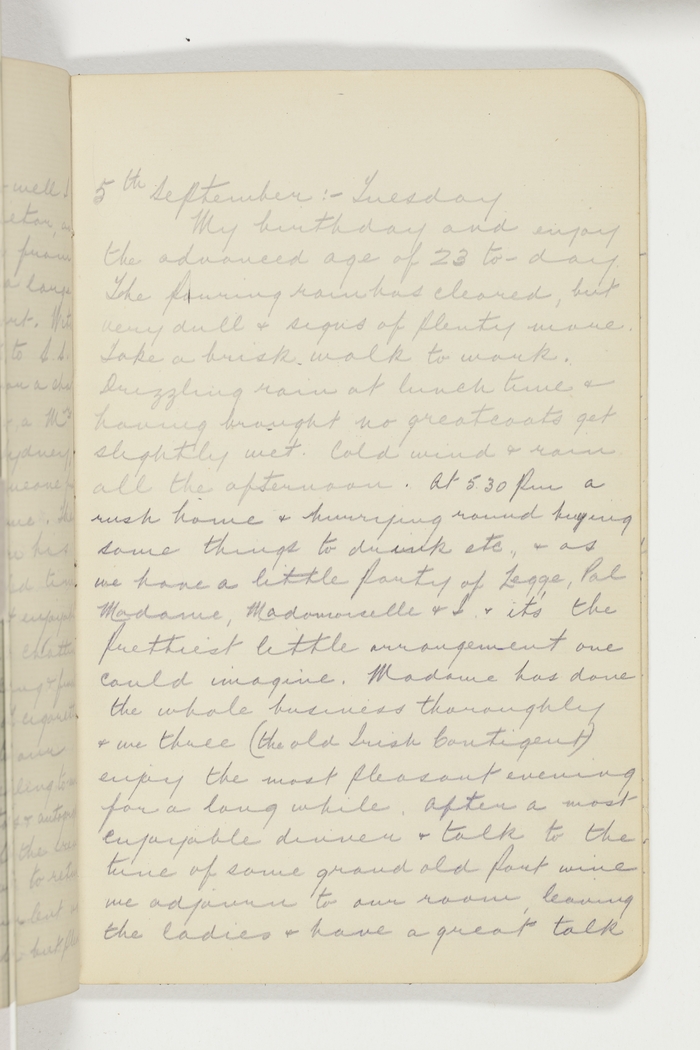 5th September :- Tuesday
My birthday and enjoy
the advanced age of 23 to-day
The pouring rain has cleared, but
very dull & signs of plenty more.
Take a brisk walk to work.
Drizzling rain at lunch time &
having brought no greatcoats get
slightly wet. Cold wind & rain
all the afternoon. At 5.30 pm a
rush home & hurrying round buying
some things to drink etc., & as
we have a little party of Legge, Pal
Madame, Madomoiselle & I. & it's the
prettiest little arrangement one
could imagine. Madame has done
the whole business thoroughly
& we three (the old Irish Contigent)
enjoy the most pleasant evening
for a long while. After a most
enjoyable dinner & talk to the
tune of some grand old port wine
we adjourn to our room, leaving
the ladies & have a great talk